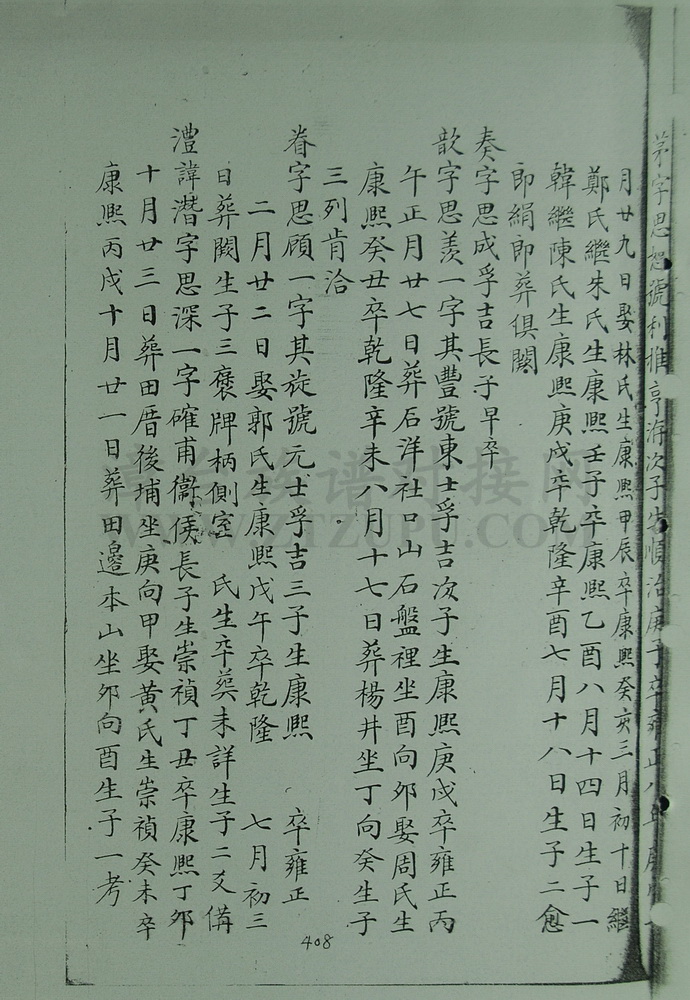 茅字思恕號利推亨洊次子生順治庚子卒雍正八年
月廿九日娶林氏生康熙甲辰卒康熙癸亥三月初十日繼
鄭氏繼朱氏生康熙壬子卒康熙乙酉八月十四日生子一
韓繼陳氏生康熙庚戌卒乾隆辛酉七月十八日生子二愈
即絹即葬俱闕
奏字思成孚吉長子早卒
歆字思羨一字其豐號東士孚吉次子生康熙庚戌卒雍正丙
午正月廿七日葬石洋社口山石盤裡坐酉向夘娶周氏生
康熙癸丑卒乾隆辛未八月十七日葬楊井坐丁向癸生子
三列肯洽
眷字思顧一字其旋號元士孚吉三子生康熙 卒雍正
二月廿二日娶郭氏生康熙戊午卒乾隆 七月初三
日葬闕生子三褒牌柄側室 氏生卒葬未詳生子二爻備
澧諱潛字思深一字確甫衞侯長子生崇禎丁丑卒康熙丁夘
十月廿三日葬田厝後埔坐庚向甲娶黃氏生崇禎癸未卒
康熙丙戌十月廿一日葬田邊本山坐夘向酉生子一考
408
WWW.ZTZUPU.COM